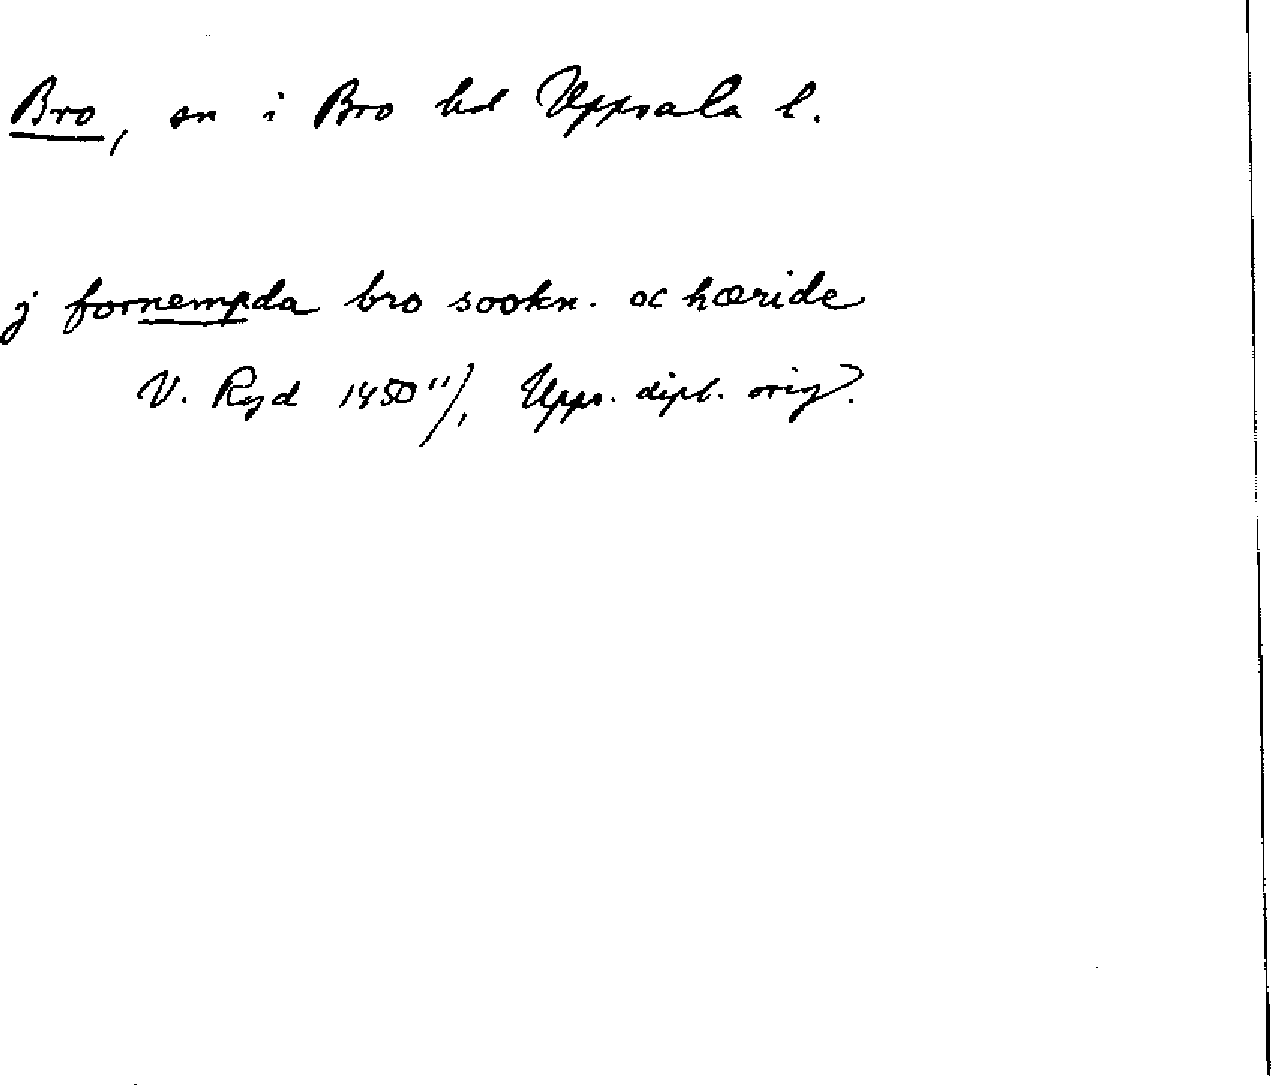 Bro, sn i Bro hd Uppsala l.
j fornempda bro sookn. oc hæride
V. Ryd 1450 11/, Upps. dipl. orig.